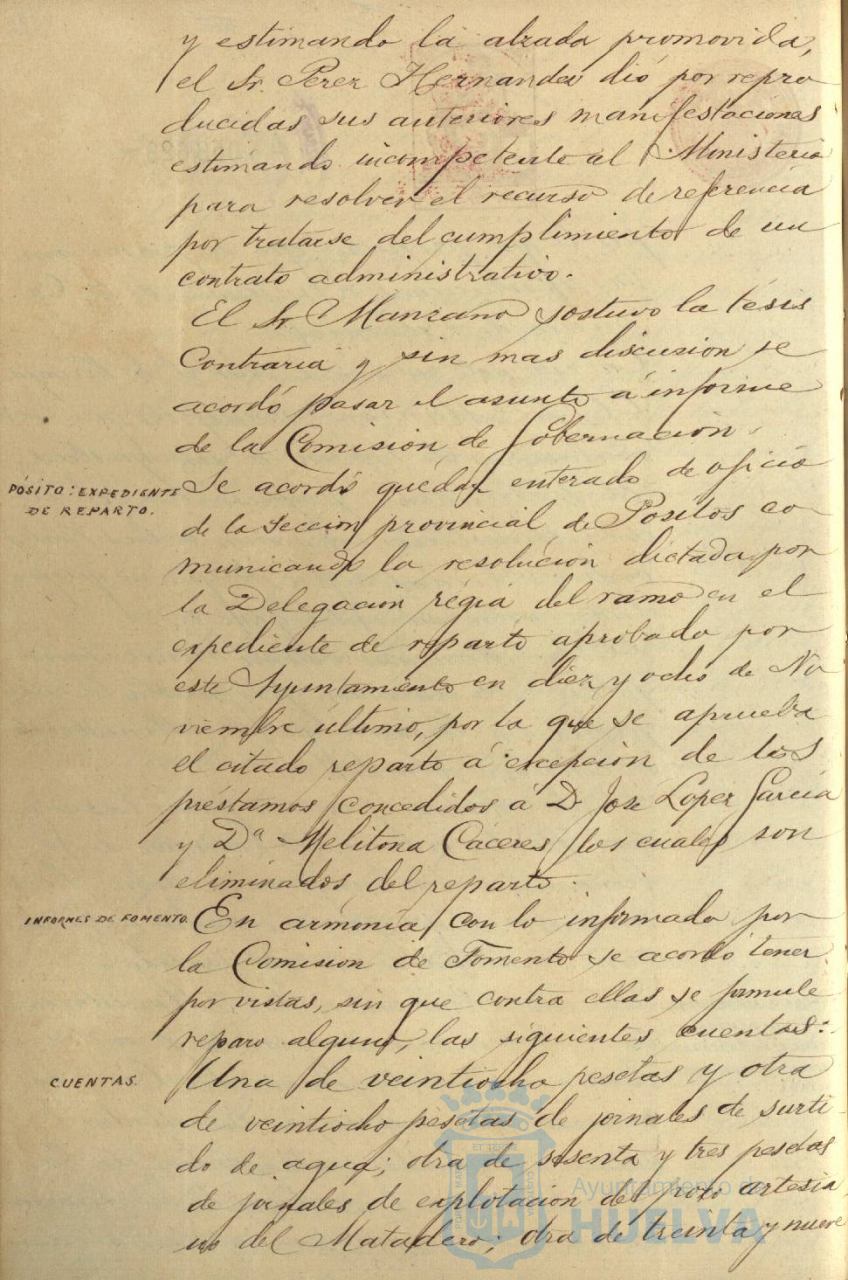 y estimando la alzada promovida,
el Sr. Perez Hernandez dió por repro
ducidas sus anteriores manifestaciones
estimando incompetente al Ministerio
para resolver el recurso de referencia
por tratarse del cumplimiento de un
contrato administrativo.
El Sr. Manzano sostuvo la tésis
contraria y sin mas discusion se
acordó pasar el asunto á informe
de la Comisión de Gobernación.
PÓSITO: EXPEDIENTE
DE REPARTO.
Se acordó quedar enterado de oficio
de la Sección provincial de Pósitos co
municando la resolución dictada por
la Delegación régia del ramo en el
expediente de reparto aprobado por
este Ayuntamiento en diez y ocho de No
viembre último, por la que se aprueba
el citado reparto á excepción de los
préstamos concedidos á D. José Lopez García
y Dª Melitona Cáceres los cuales son
eliminados del reparto.
INFORMES DE FOMENTO.
En armonía con lo informado por
la Comisión de Fomento se acordó tener
por vistas, sin que contra ellas se formule
reparo alguno, las siguientes cuentas:
CUENTAS.
Una de veintiocho pesetas y otra
de veintiocho pesetas de jornales de surti
do de agua; otra de sesenta y tres pesetas
de jornales de explotación del pozo artesia
no del Matadero; otra de treinta y nueve
Ayuntamiento de
HUELVA